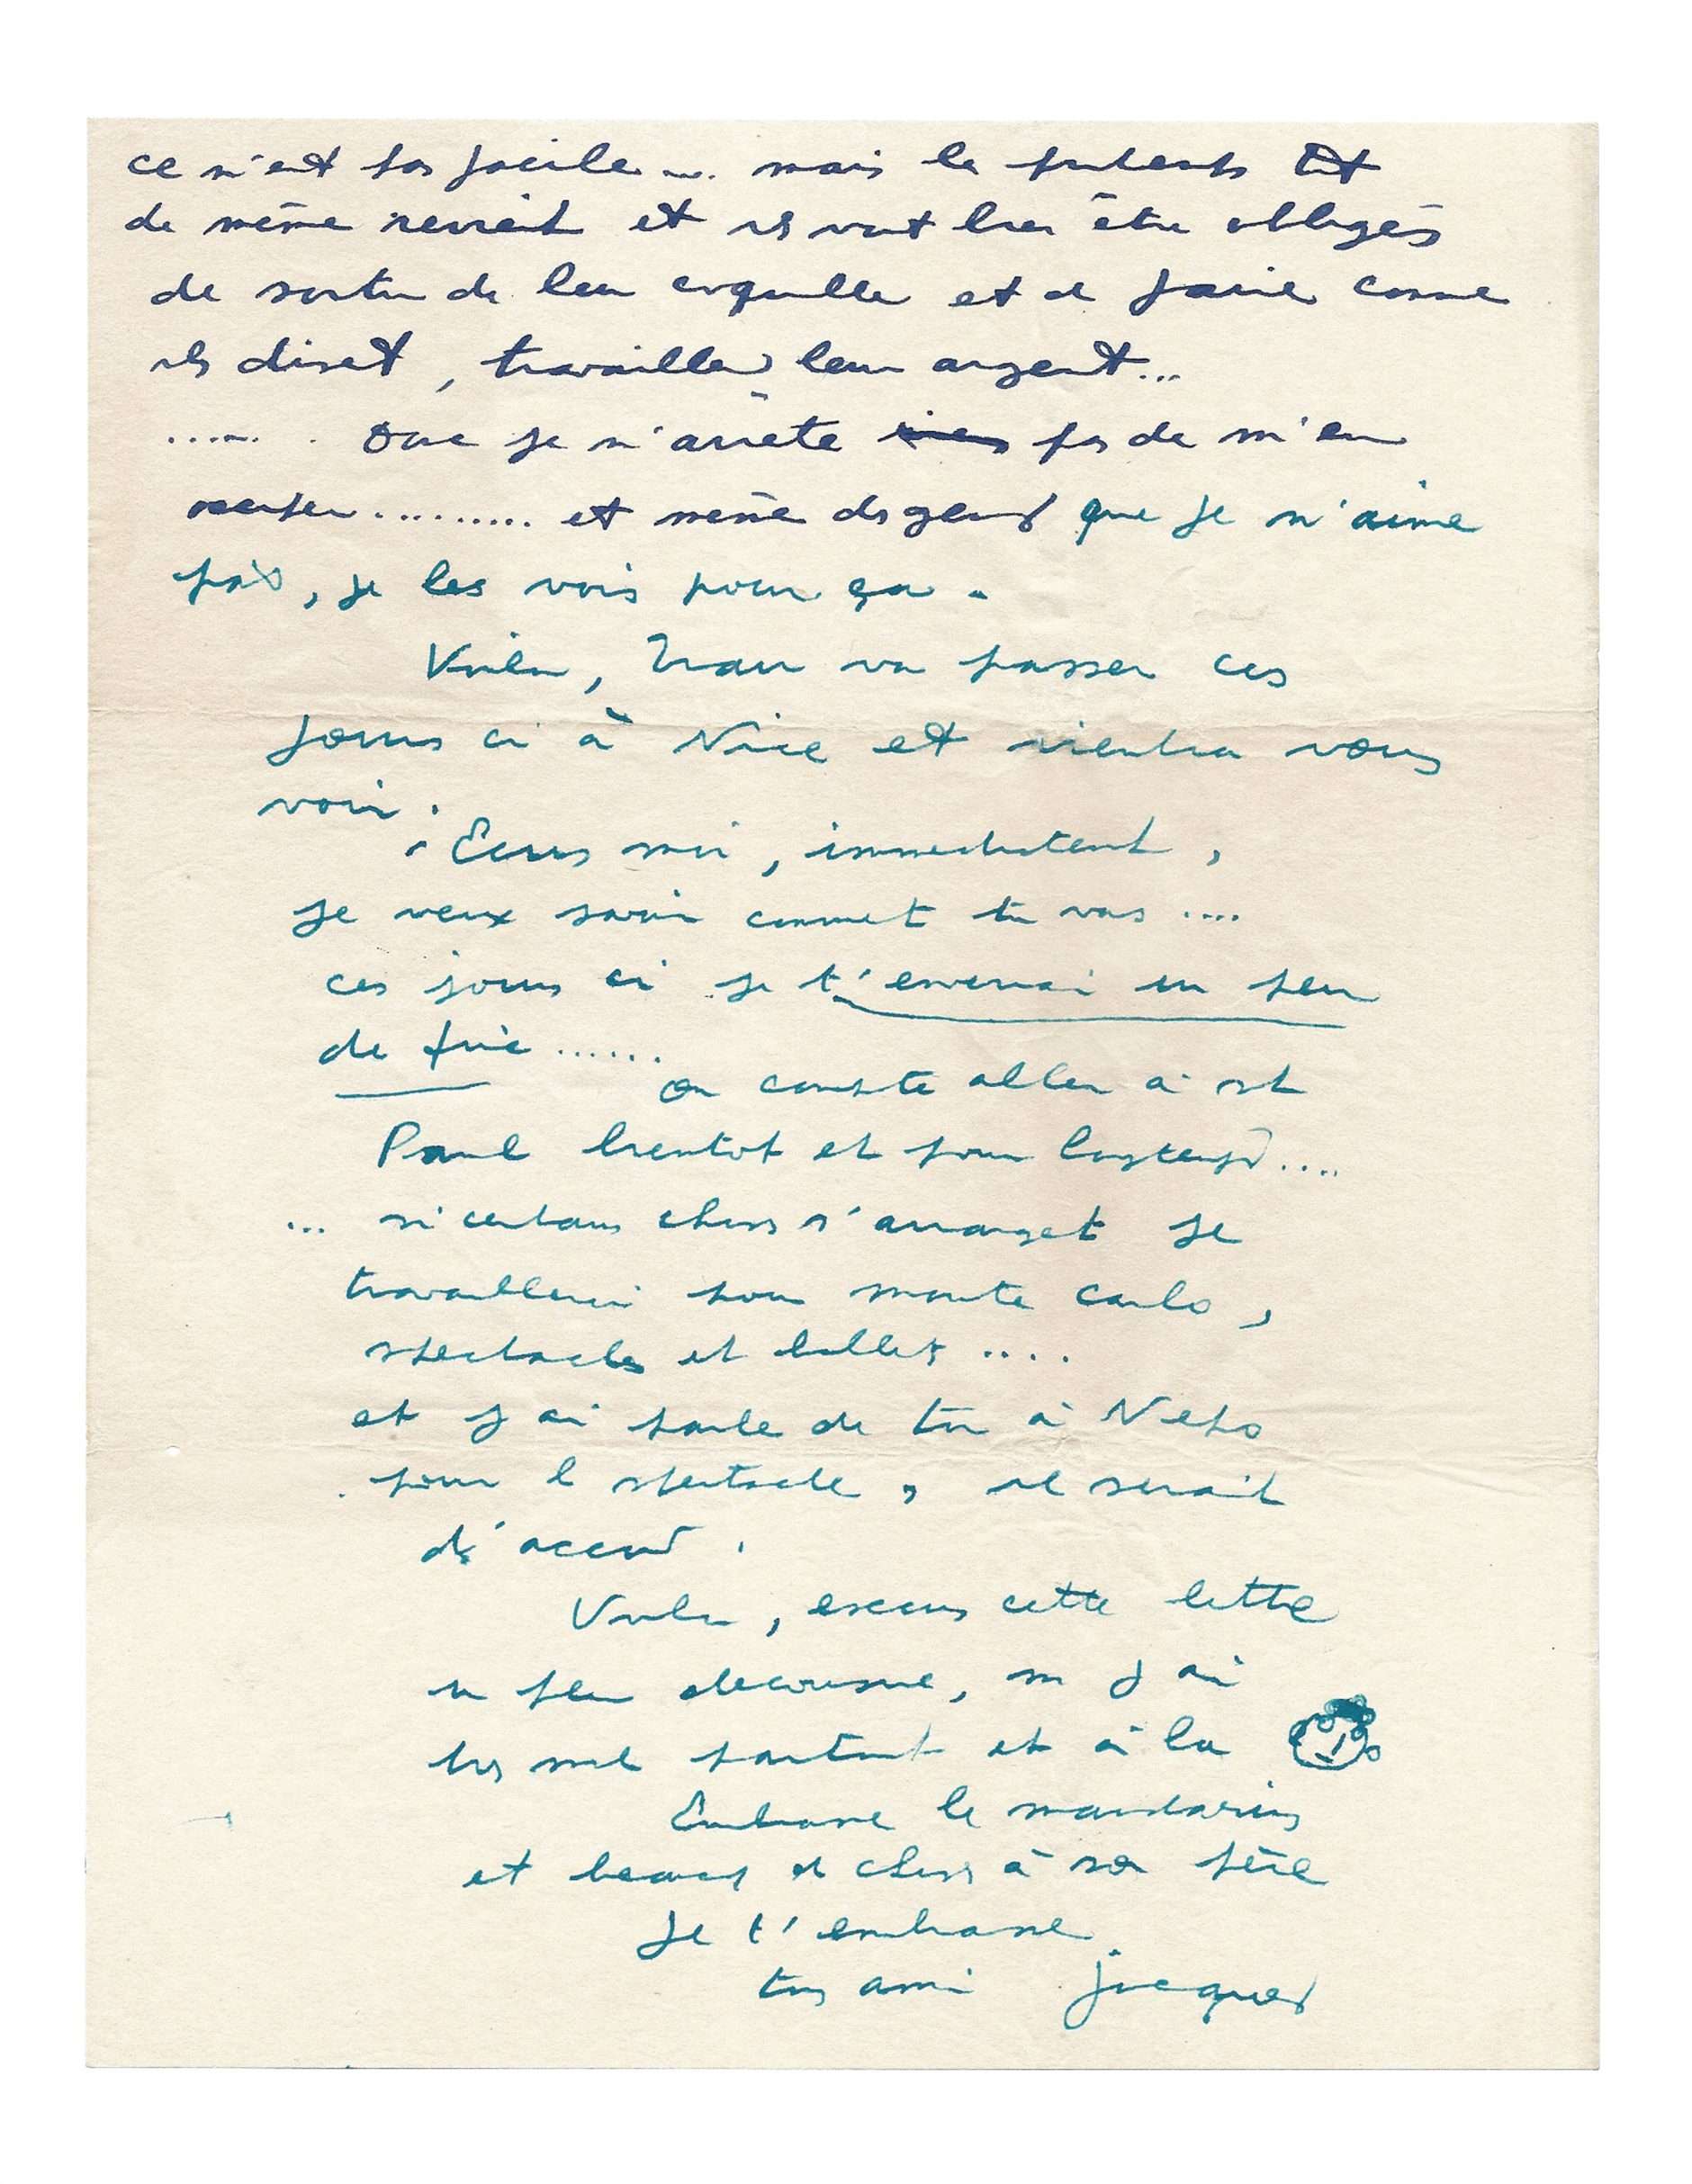 ce n'est pas facile .... mais le printemps tt
de même revient et ils vont bien être obligés
de sortir de leur coquille et de faire comme
ils disent, travailler leur argent...
...... . Donc je n'arrête pas de m'en
occuper ......... et même des gens que je n'aime
pas, je les vois pour ça .
Voilà, va passer ces
jours ci à Nice et viendra vous
voir .
Ecris moi, immediatement,
je veux savoir comment tu vas ....
ces jours ci je t'enverrai un peu
de fric ......
on compte aller à st
Paul bientot et pour longtemps ....
... si certaines choses s'arrangent je
travaillerai pour monte carlo,
spectacles et ballets ....
et j'ai parlé de toi à
pour le spectacle, il serait
d'accord .
Voilà, excuse cette lettre
un peu decousue, m j'ai
très mal partout et à la
Embrasse le mandarin
et beaucoup de choses à son père
Je t'embrasse.
ton ami jacques